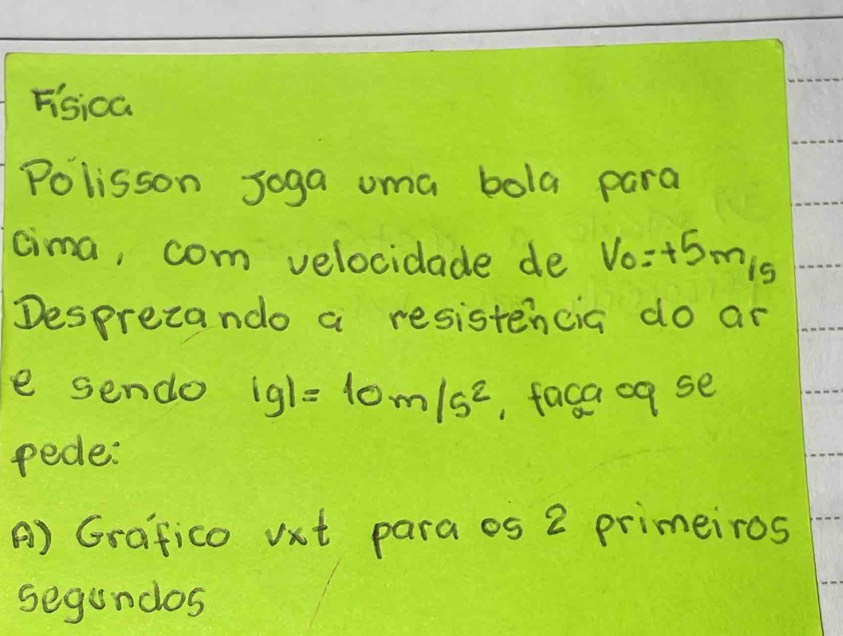 Física
Pólisson joga uma bola para
cima, com velocidade de Vo=+5m/s
Desprezando a resistência do ar
e sendo |g|= 10m/s², faça oq se
pede:
A) Gráfico vxt para os 2 primeiros
segundos